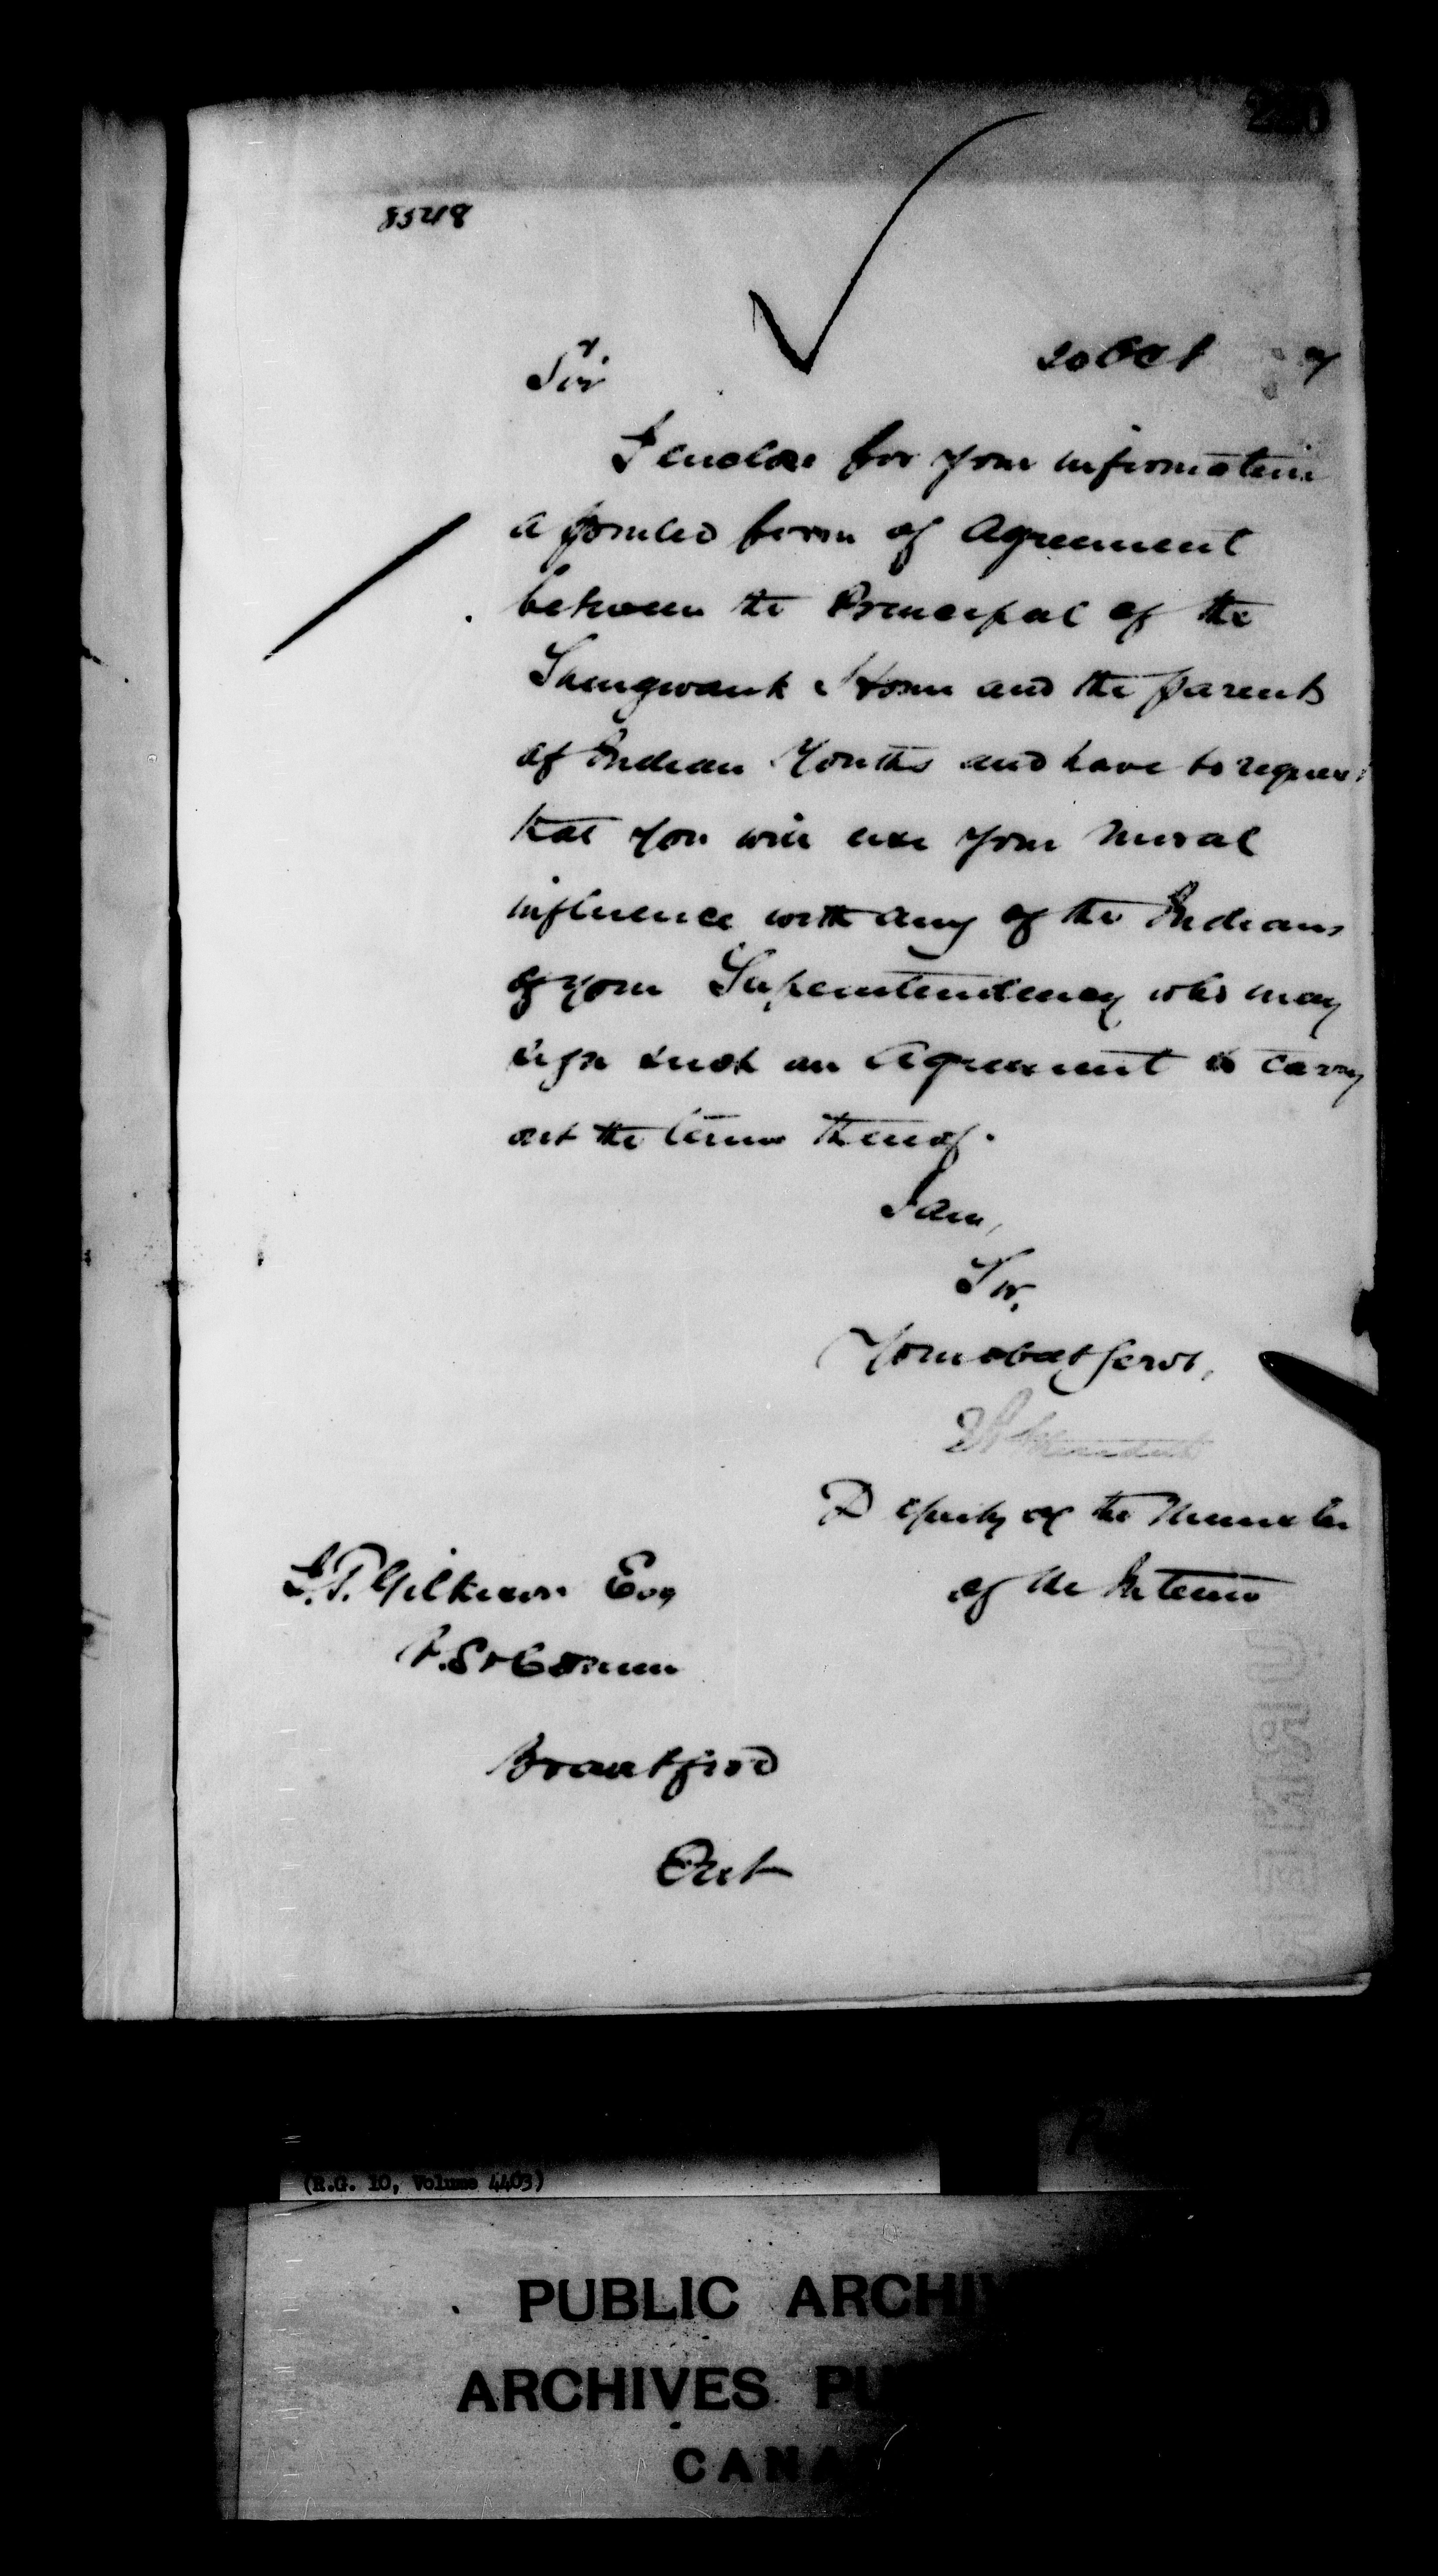 220
8548
20 Oct 7
Sir
I enclose for your information
a printed form of Agreement
between the Principal of the
Shingwauk Home and the parents
of Indian Youths and have to request
that you will use your moral
influence with any of the Indians
of your Superintendency who may
sign such an Agreement to carry
out the terms thereof.
I am,
Sir,
Your obedt servt,
Deputy of the Minister
of the Interior
J.T. Gilkison Esq
V.S & Commr
Brantford
Ont
(R.G. 10, Volume 4403)
PUBLIC ARCHIV
ARCHIVES PU
CANA